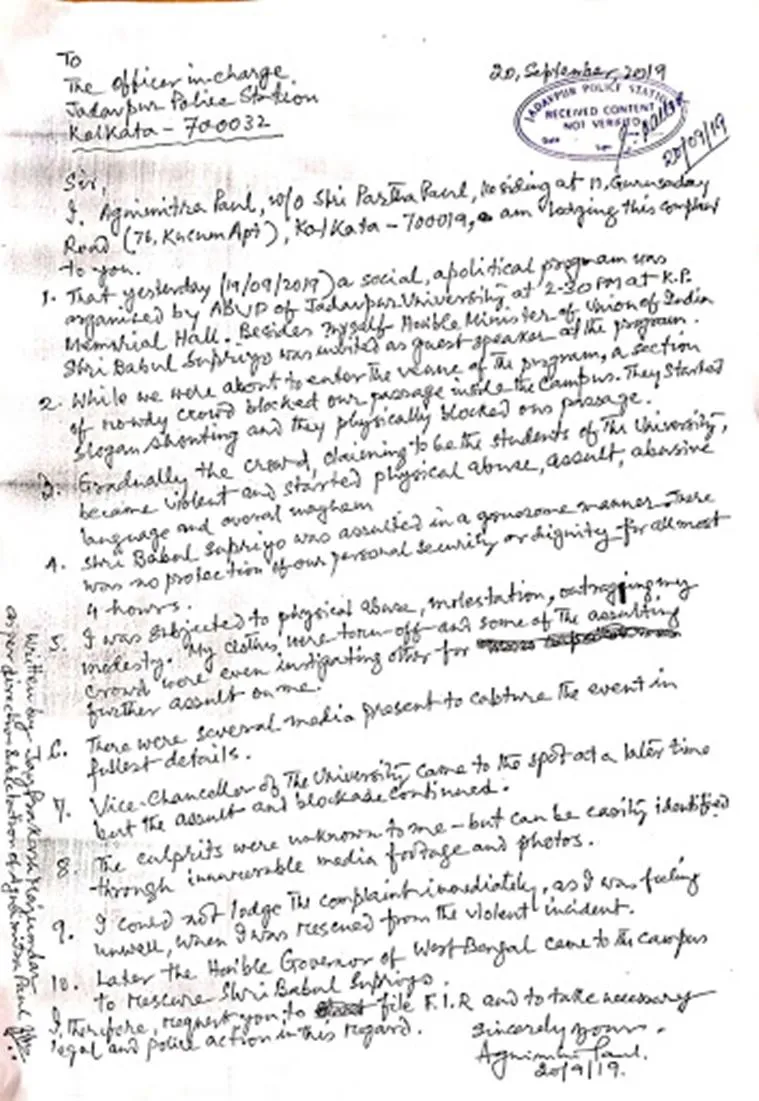 To
The Officer in-charge
Jadavpur Police Station
Kolkata - 700032
20, September, 2019
JADAVPUR POLICE STATION
RECEIVED CONTENT
NOT VERIFIED
Date
20/09/19
Sir,
I, Agnimitra Paul, w/o Shri Partha Paul, residing at 11, Gurusaday
Road (76, Kusum Apt), Kolkata - 700019, am lodging this
to you.
1. That yesterday (19/09/2019) a social, apolitical program was
organised by ABVP of Jadavpur University at 2-30 PM at K.P.
Memorial Hall. Besides myself Hon'ble Minister of Union of India
Shri Babul Supriyo was invited as guest speaker of the program.
2. While we were about to enter the venue of the program, a section
of rowdy crowd blocked our passage inside the Campus. They started
slogan shouting and they physically blocked our passage.
3. Gradually the crowd, claiming to be the students of the University,
became violent and started physical abuse, assult, abusive
language and overal mayhem
4. Shri Babul Supriyo was assulted in a gruesome manner. There
was no protection of our personal security or dignity for allmost
4 hours.
5. I was subjected to physical abuse, molestation, outraging my
modesty. My clothes were torn-off and some of the assulting
crowd were even instigating other for
further assult on me.
6. There were several media present to capture the event in
fullest details.
7. Vice-Chancellor of The University came to the spot at a later time
but the assult and blockade continued.
8. The culprits were unknown to me - but can be easily identified
through innumerable media footage and photos.
9. I could not lodge the complaint immediately, as I was feeling
unwell, when I was rescued from the violent incident.
10. Later the Hon'ble Governor of West Bengal came to the campus
to rescure Shri Babul Supriyo.
I, therefore, request you to file F.I.R and to take necessary
legal and police action in this regard.
Sincerely yours.
Agnimitra Paul.
20/9/19.
Written by Jay Prakash Majumdar
as per direction & dictation of Agnimitra Paul